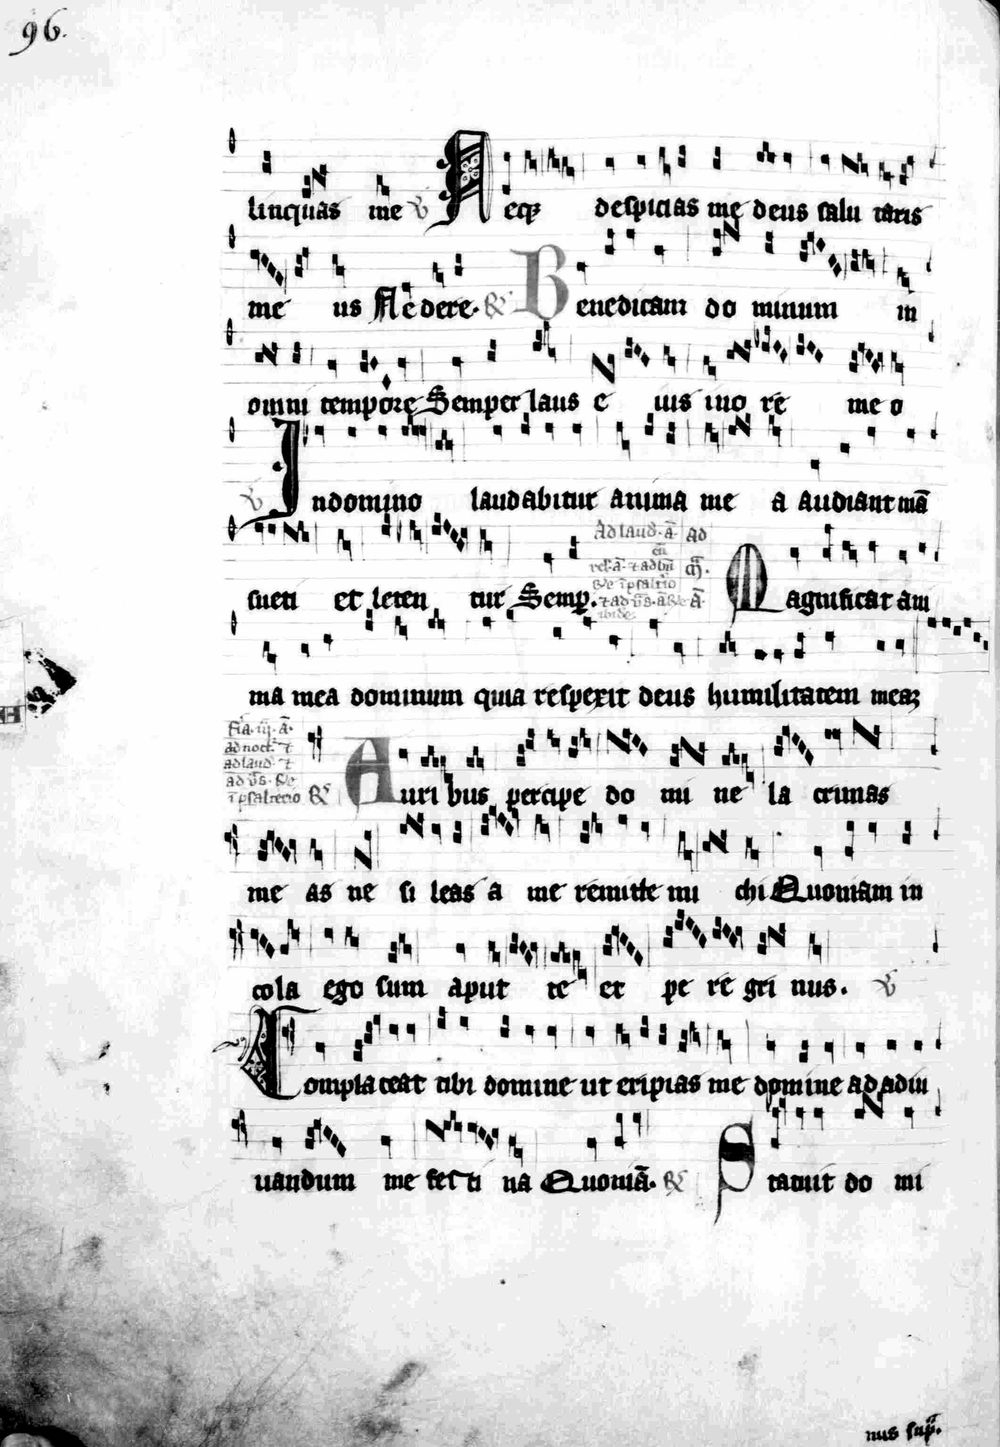 96.
linquas me V Necꝫ despicias me deus salu taris
me us Ne dere. R Benedicam do minum in
omni tempore Semper laus e ius ino re me o
V Indomino laudabitur anima me a audiant mā
sueti et leten tur Semp. Ad laud. ā. Ad Magnificat ani
ma mea dominum quia respexit deus humilitatem meaꝫ
fīa. iij. ā.
ad noct. ⁊
ad laud. ⁊
ī psalterio R Auri bus percipe do mi ne la crimas
me as ne si leas a me remitte mi chi Quoniam in
cola ego sum aput te et pe re gri nus. V
Complaceat tibi domine ut eripias me domine ad adiu
uandum me festi na Quoniā. R Statuit do mi
nus sup̄.